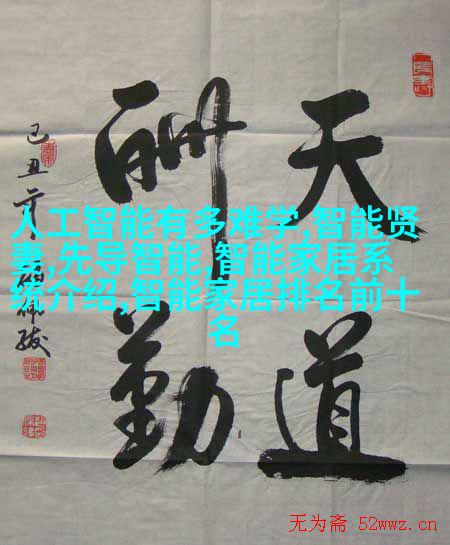 天道
酬勤
己丑
人工智能有多难学,智能贤
妻,先导智能,智能家居系
统介绍,智能家居排名前十
名
无为斋 52wwz.cn